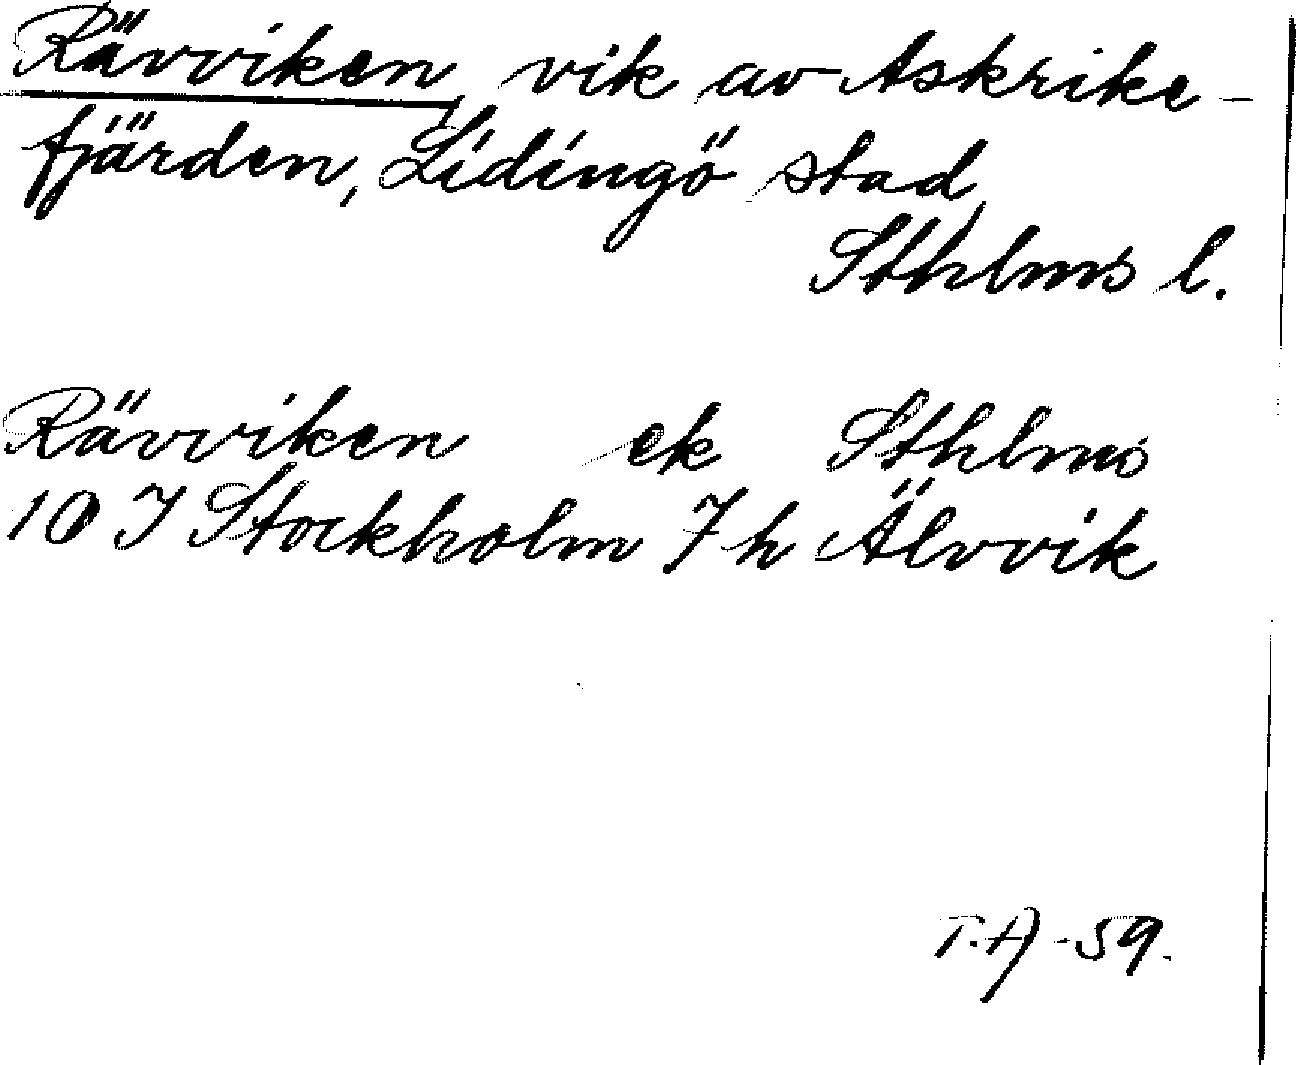 Rävviken, vik av Askrike-
fjärden, Lidingö stad,
Sthlms l.
Rävviken ek Sthlms
10 I Stockholm 7 h Älvvik
T.A -59.